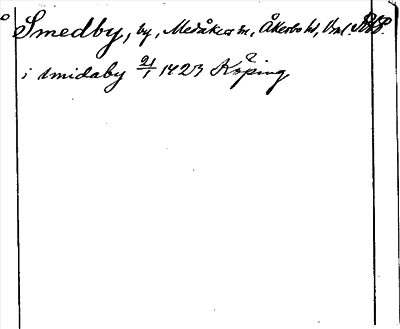 Smedby, by, Medåkers sn, Åkerbo hd, Vml.
i smidaby 21/1 1423 Köping